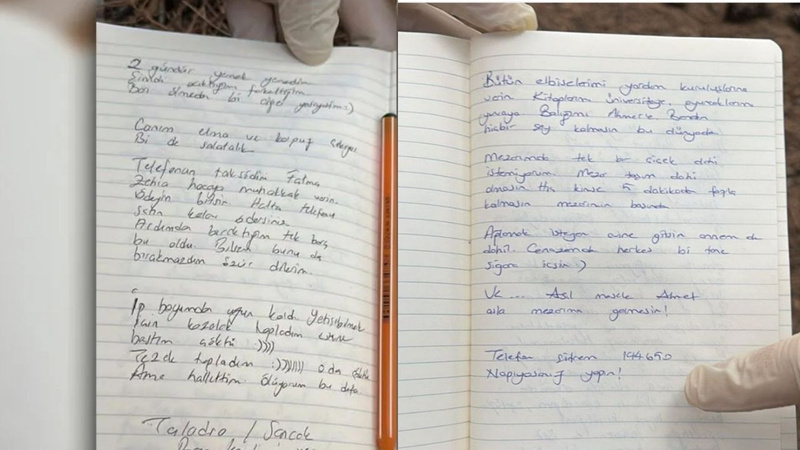 2 gündür yemek yemedim
Şimdi acıktığımı farkettim
Bari ölmeden bi cigara yakayım :)
Canım elma ve karpuz çekiyor
Bi de salatalık
Telefonun taksidini Fatma
Zehra hocaya muhakkak verin.
Ödeyin bitsin Hatta telefonu
satın kalanı ödersiniz
Ardımdan bıraktığım tek borç
bu oldu. Bilsem bunu da
bırakmazdım özür dilerim.
İp boyumdan uzun kaldı yetişebilmek
için kozalak topladım üstüne
bastım çöktü :))))
Tezek topladım :)))))) o da
Ama hallettim ölüyorum bu defa.
Bütün elbiselerimi yardım kuruluşlarına
verin Kitaplarımı üniversiteye, oyuncaklarımı
yuvaya Benden
hiçbir şey kalmasın bu dünyada
Mezarımda tek bir çiçek dahi
istemiyorum Mezar taşım dahi
olmasın Hiç kimse 5 dakikadan fazla
kalmasın mezarımın başında
Ağlamak isteyen evine gitsin annem de
dahil. Cenazemde herkes bi tane
sigara içsin :)
Ve ... Asıl mesele Ahmet
asla mezarıma gelmesin!
Telefon şifrem 194650
Napıyosanız yapın!